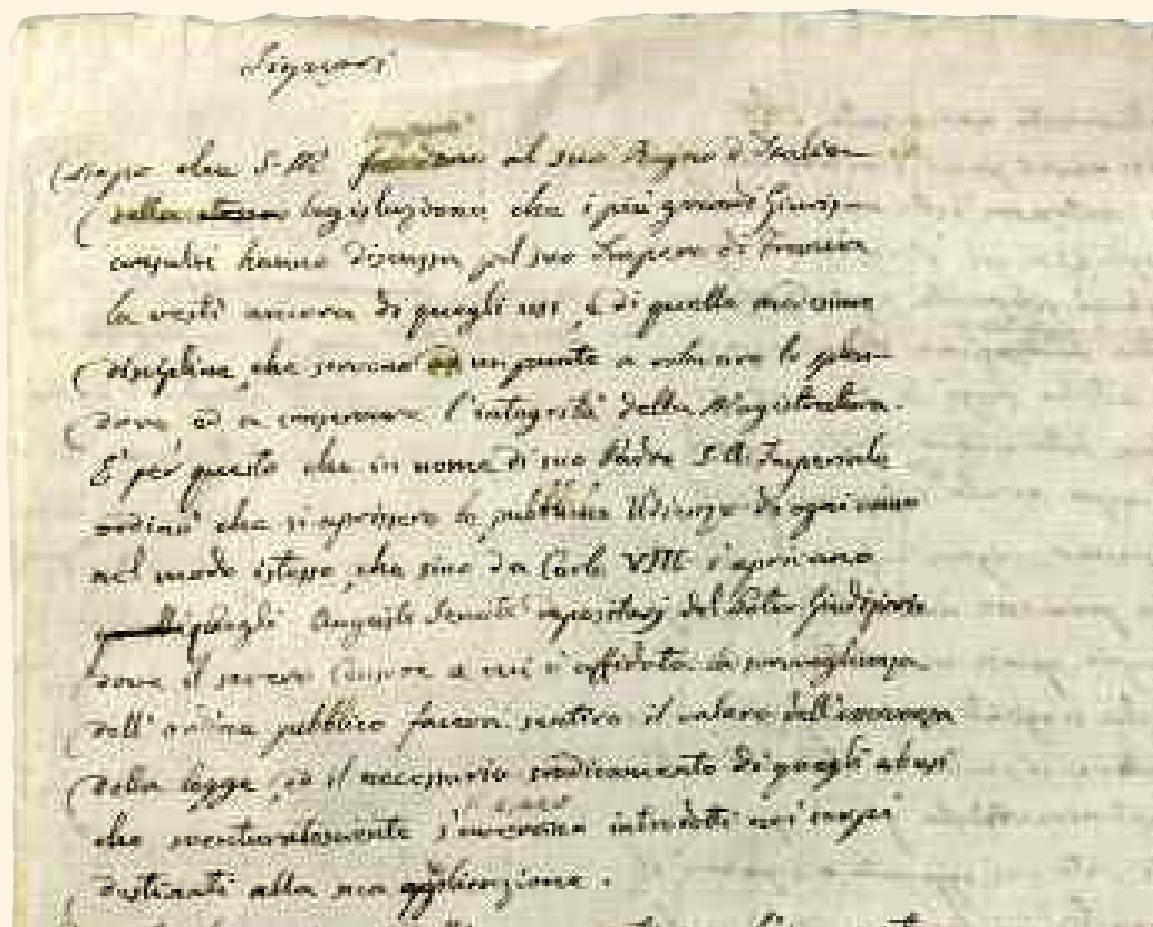 Signori
Dopo che S. M. al suo Regno d'Italia
della legislazione, che i più grandi Giuris-
consulti hanno discussa pel suo Impero di Francia
la vestì ancora di quegli usi, e di quella medesima
disciplina, che servono un punto a
ed a conservare l'integrità della Magistratura.
E' per questo che in nome di suo Padre S. A. Imperiale
ordinò che si aprissero le pubbliche Udienze di ogni anno
nel modo istesso, che sino da Carlo VIII s'aprivano
quegli Augusti del Poter Giudiziario
dove il Censore a cui è affidata la sorveglianza
dell'ordine pubblico faceva sentire il valore dell'osservanza
della legge, ed il necessario sradicamento di quegli abusi
che sventuratamente introdotti nei corpi
destinati alla sua applicazione.